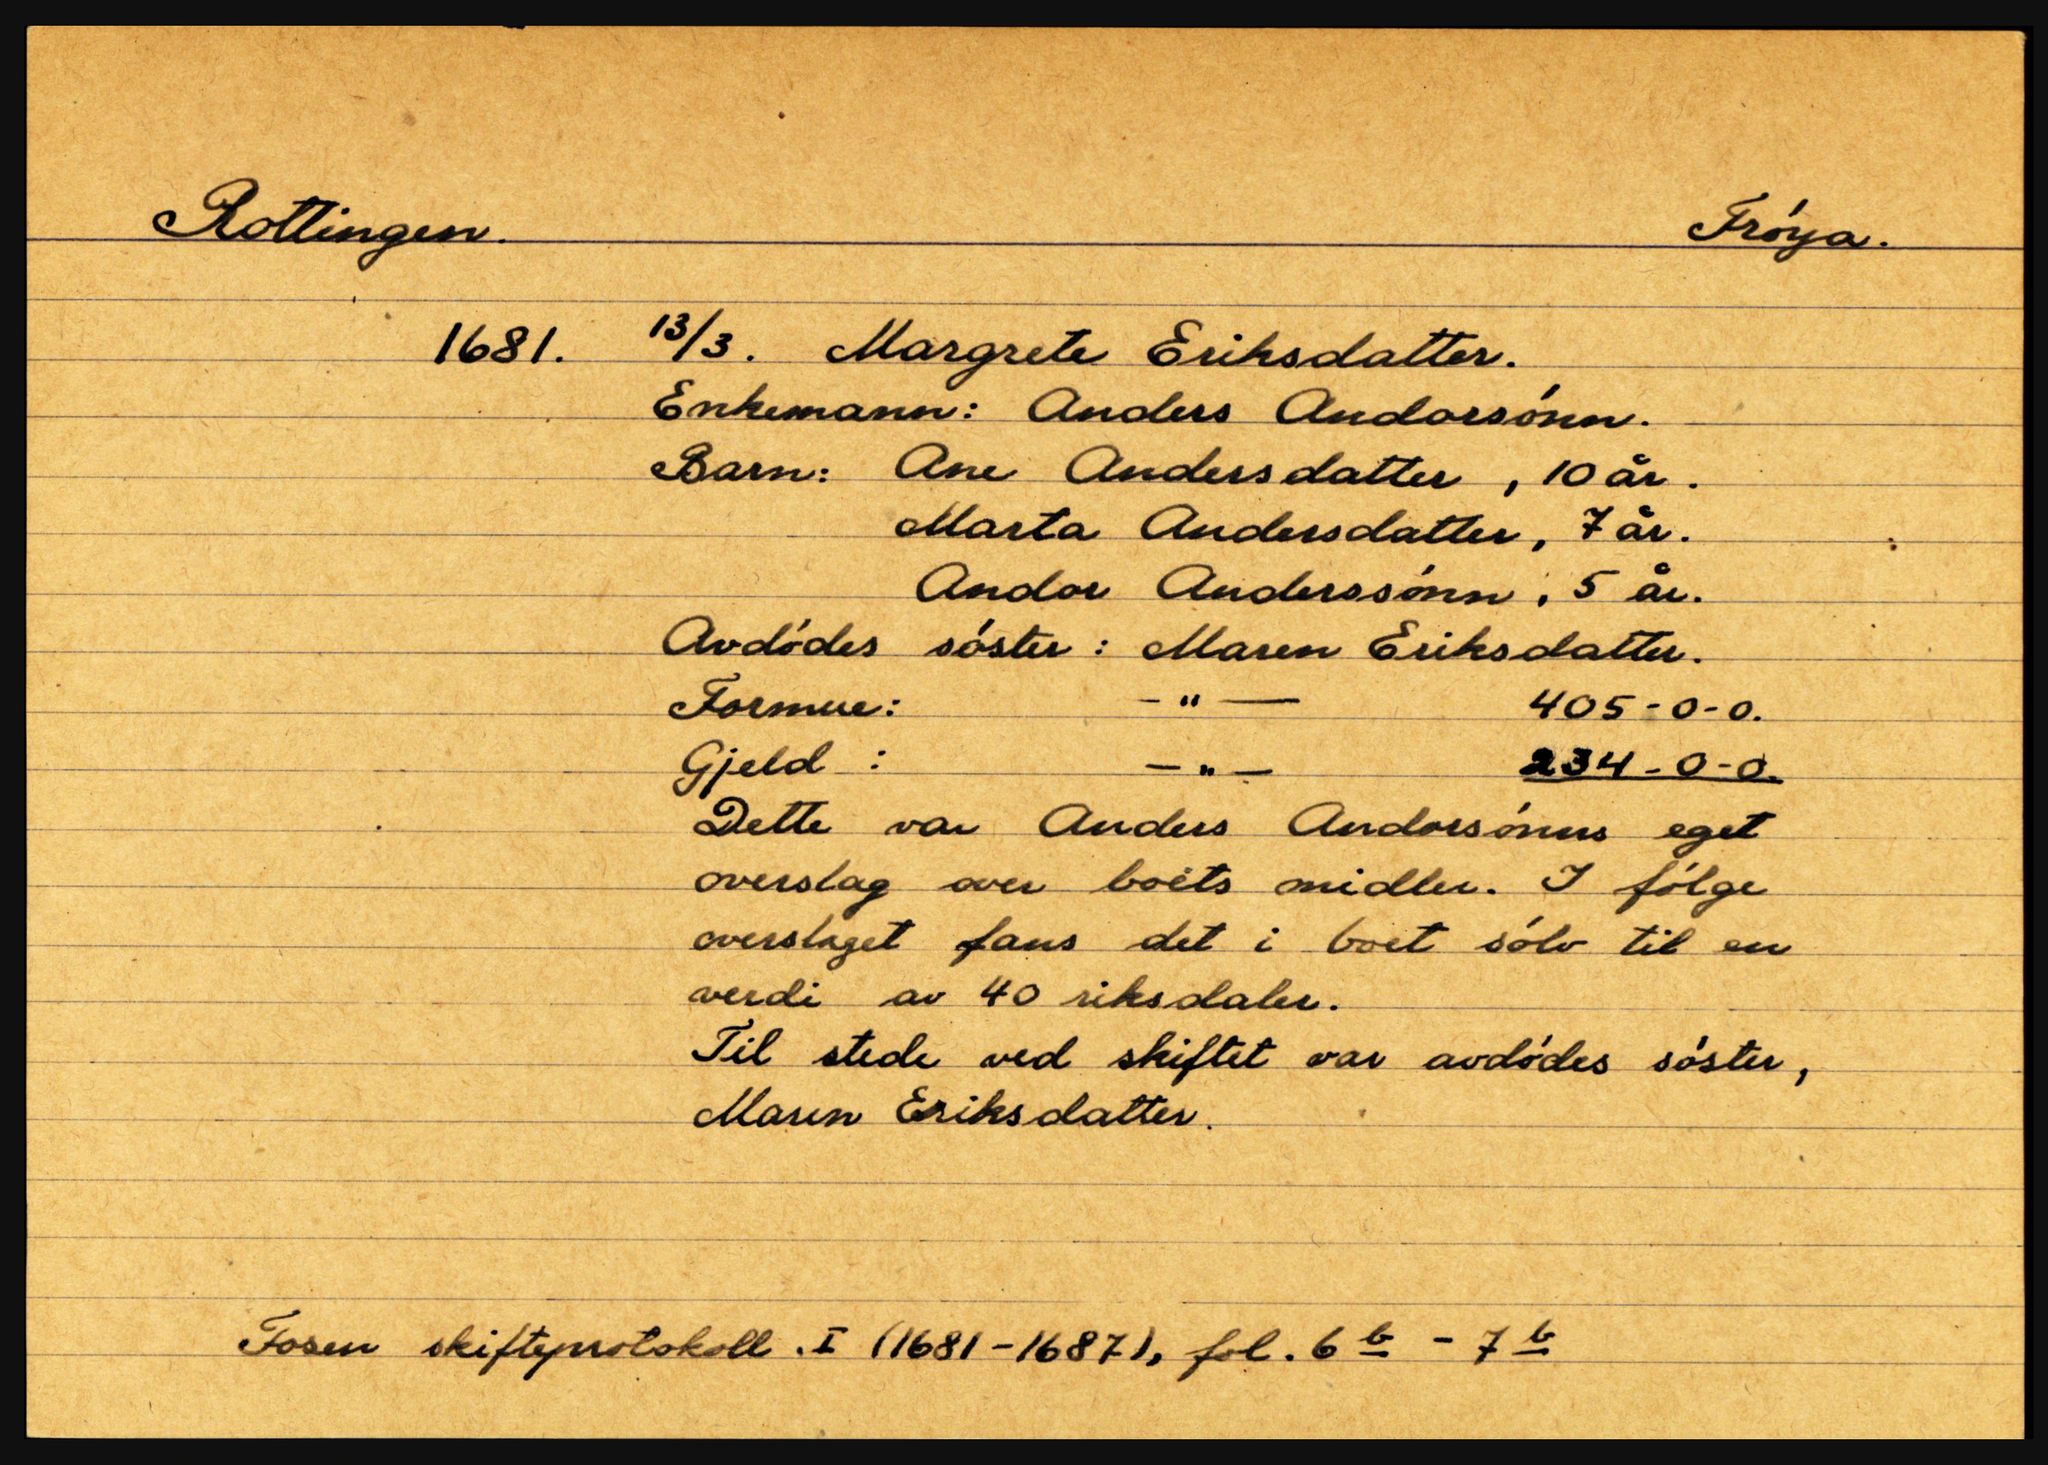 Rottingen. Fróya.
1681. 13/3. Margrete Eriksdatter.
Enkemann: Anders Andorsónn.
Barn: Ane Andersdatter, 10 år.
Marta Andersdatter, 7 år.
Andor Anderssónn, 5 år.
Avdódes sóster: Maren Eriksdatter.
Formue: - " - 405-0-0.
Gjeld: - " - 234-0-0.
Dette var Anders Andorsónns eget
overslag over boets midler. I fólge
overslaget fans det i boet sólv til en
verdi av 40 riksdaler.
Til stede ved skiftet var avdódes sóster,
Maren Eriksdatter.
Fosen skifteprotokoll. I (1681-1687), fol. 6 b - 7 b